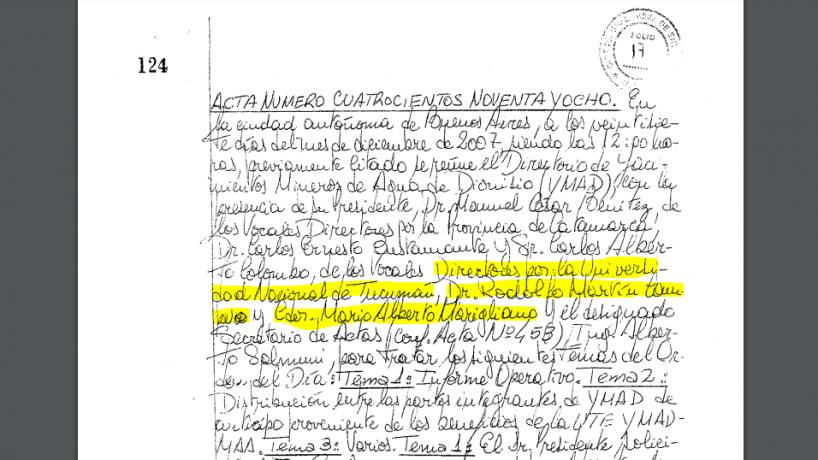 124
FOLIO
17
ACTA NUMERO CUATROCIENTOS NOVENTA Y OCHO. En
la ciudad autónoma de Buenos Aires, a los veintisie-
te días del mes de diciembre de 2007, siendo las 12:00 ho-
ras, previamente citado se reúne el Directorio de Yaci-
mientos Mineros de Agua de Dionisio (YMAD), con la
presencia de su Presidente, Dr. Manuel Cesar Benitez, de
los Vocales Directores por la Provincia de Catamarca,
Dr. Carlos Ernesto Bustamante y Sr. Carlos Alber-
to Colombo, de los Vocales Directores por la Universi-
dad Nacional de Tucumán, Dr. Rodolfo Martín Cam
y Cdor. Mario Alberto Marigliano y el designado
Secretario de Actas (conf. Acta Nº 458), Ing. Alber-
to Salmuni, para tratar los siguientes Temas del Or-
den del Día: Tema 1: Informe Operativo. Tema 2:
Distribución entre las partes integrantes de YMAD de
anticipo proveniente de los beneficios de la UTE YMAD-
MAA. Tema 3: Varios. Tema 1: El Sr. Presidente solici-